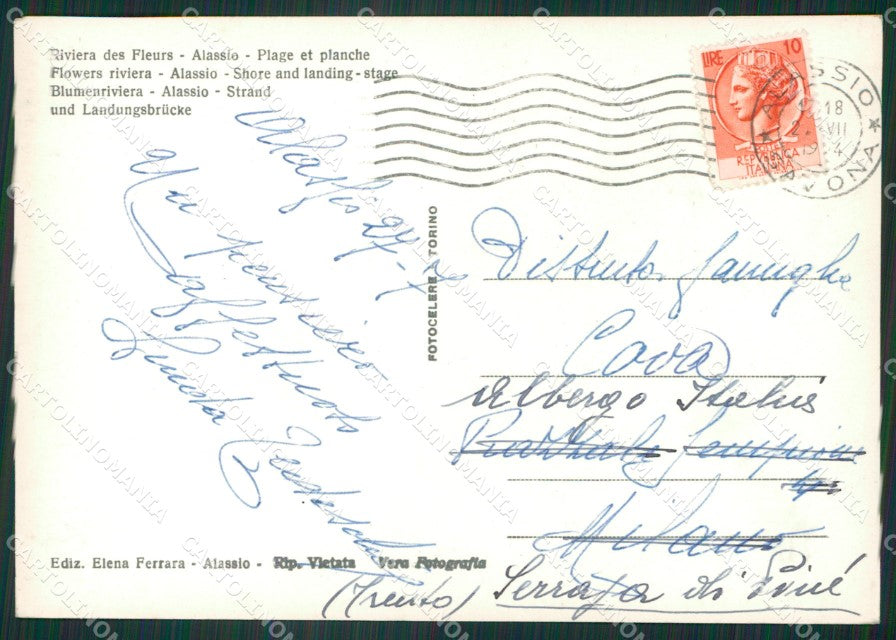 Riviera des Fleurs - Alassio - Plage et planche
Flowers riviera - Alassio - Shore and landing-stage
Blumenriviera - Alassio - Strand
und Landungsbrücke
LIRE 10
REPUBBLICA
ITALIANA
ALASSIO
18
SAVONA
Alassio 27-7
Un pensiero
affettuoso
FOTOCELERE TORINO
Distinta famiglia
Cova
Albergo Italia
Piazzale Sempione
Milano
(Trento) Serraja di Piné
Ediz. Elena Ferrara - Alassio - Rip. Vietata Vera Fotografia
CARTOLINOMANIA